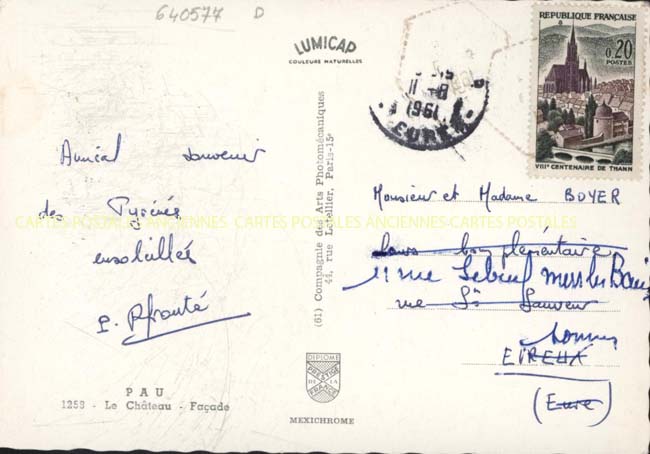 640577 D
LUMICAP
COULEURS NATURELLES
RÉPUBLIQUE FRANÇAISE
0,20
POSTES
VIIIe CENTENAIRE DE THANN
11-8
1961
EURE
Amical souvenir
des Pyrénées
ensoleillées
CARTES POSTALES ANCIENNES-CARTES POSTALES ANCIENNES-CARTES POSTALES
(61) Compagnie des Arts Photomécaniques
44, rue Letellier, Paris-15e
Monsieur et Madame BOYER
Cours complémentaire
11 rue Lebeuf
rue St Sauveur
EVREUX
(Eure)
PAU
1253 - Le Château - Façade
DIPLOME
PRESTIGE
DE LA
FRANCE
MEXICHROME